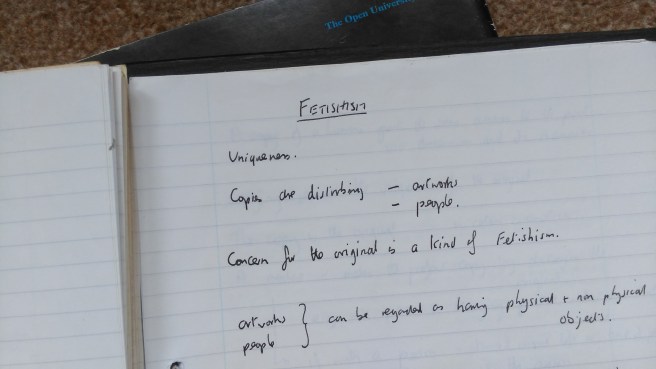 The Open Universit
FETISHISM
Uniqueness.
Copies are disturbing – artworks
– people.
Concern for the original is a kind of Fetishism.
artworks } can be regarded as having physical + non physical
people objects.